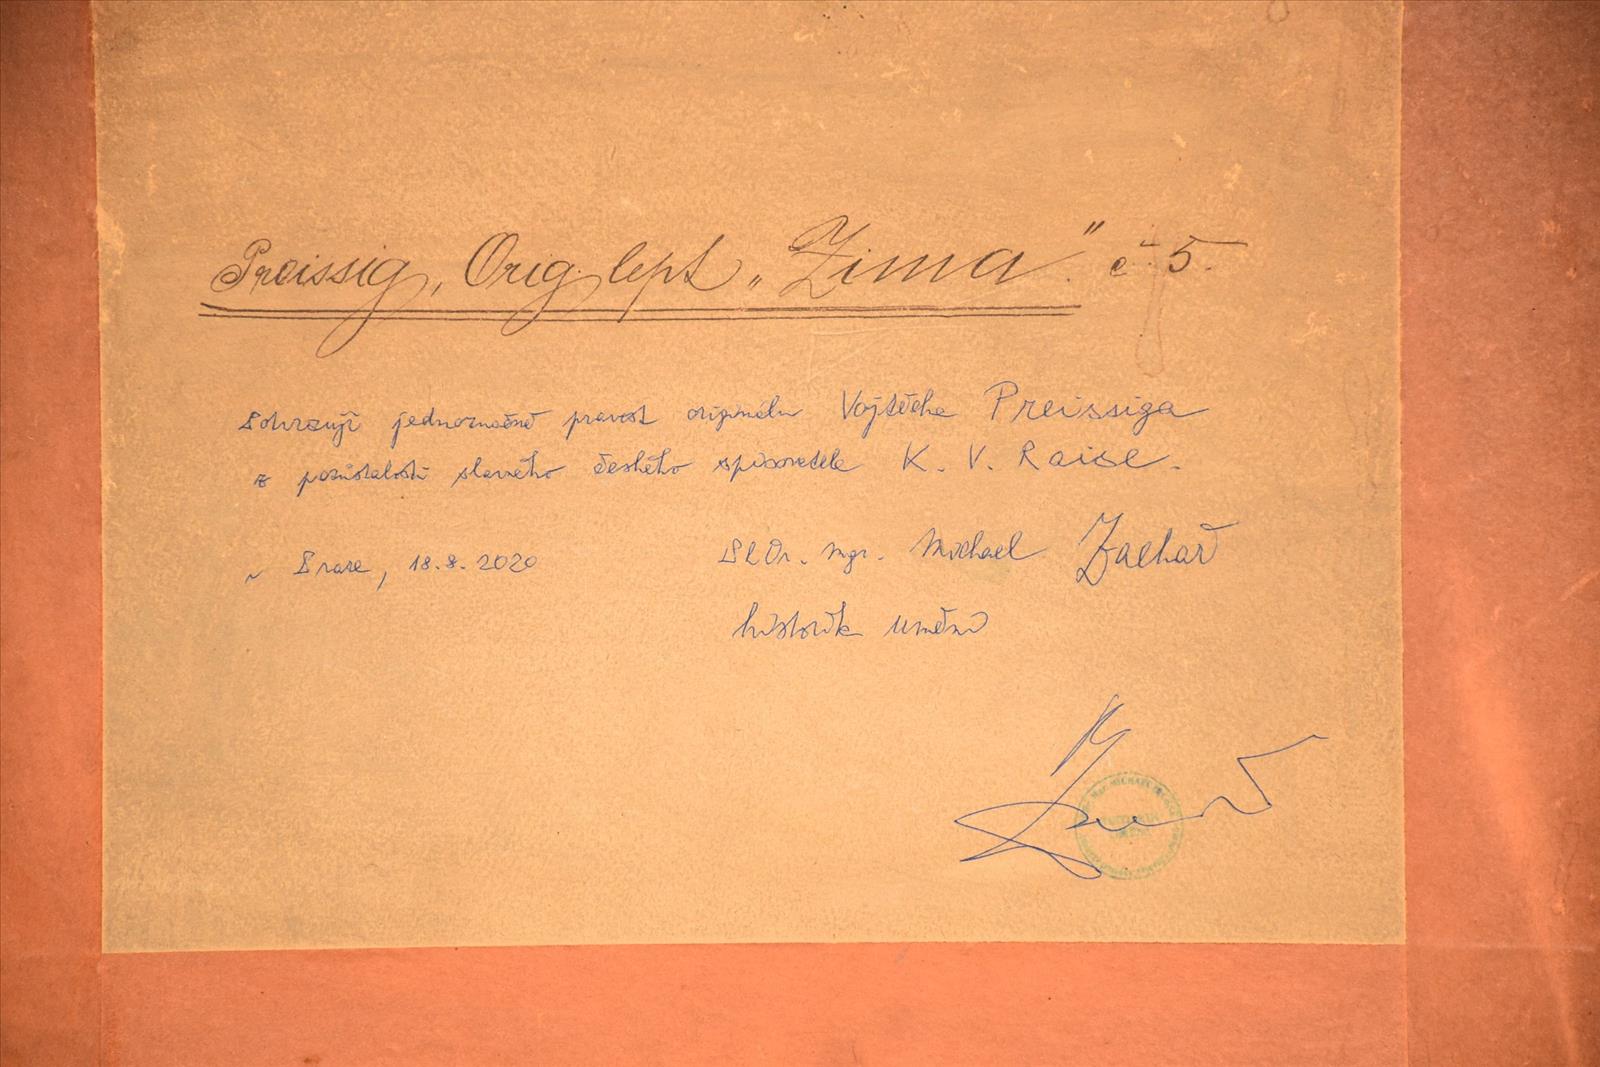 Preissig, Orig. lept „Zima." č 5.
Potvrzuji jednoznačně pravost originálu Vojtěcha Preissiga
z pozůstalosti slavného českého spisovatele K. V. Raise.
v Praze, 18.8.2020
PhDr. Mgr. Michael Zachař
historik umění